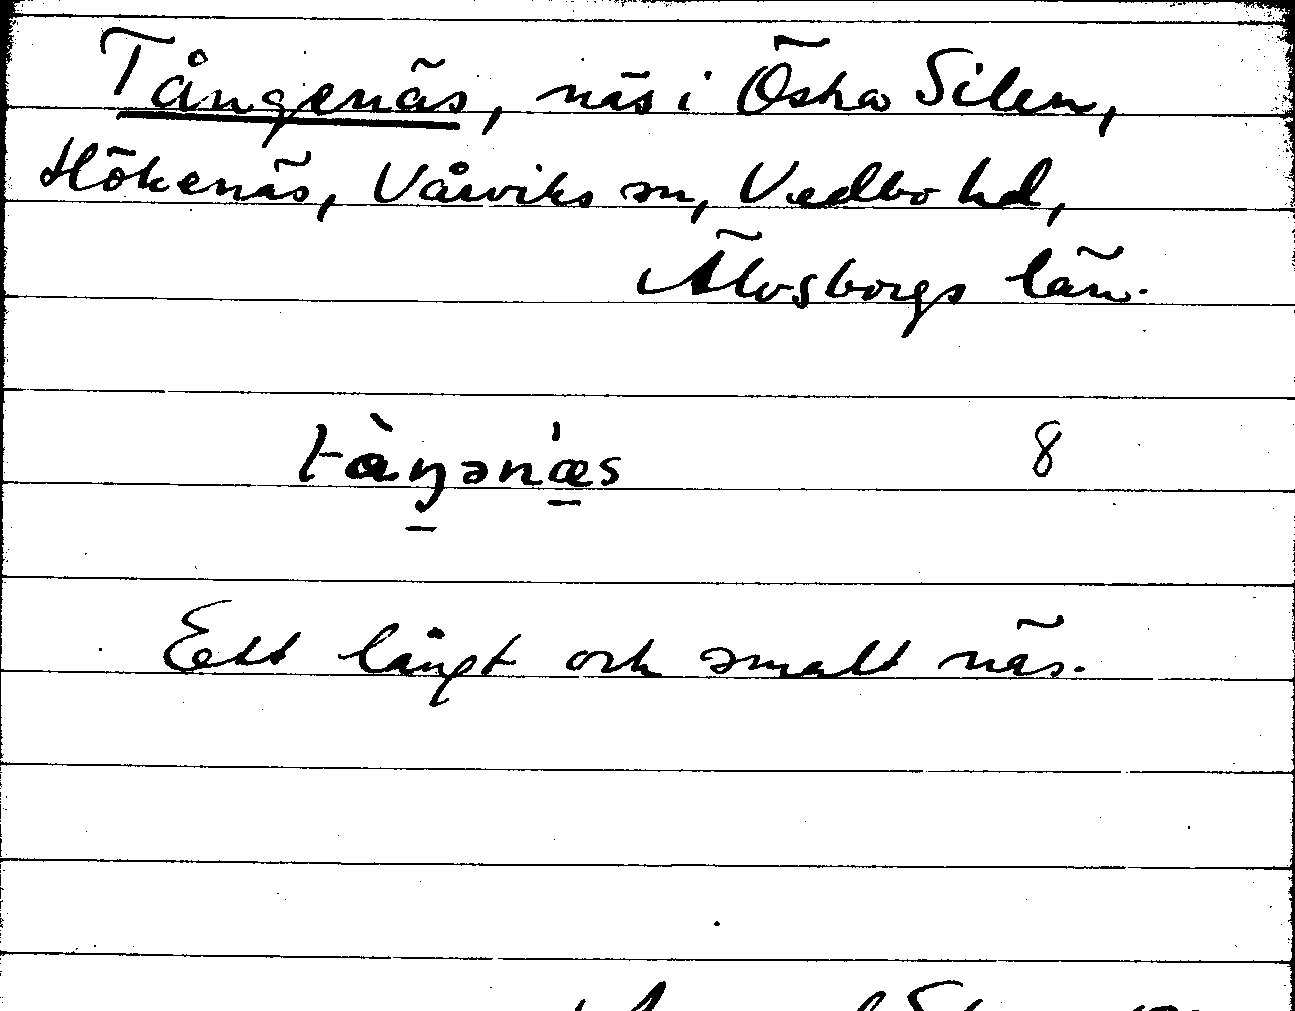 Tångenäs, näs i Östra Silen,
Hökenäs, Vårviks sn, Vedbo hd,
Älvsborgs län.
tὰŋənˈæs 8
Ett långt och smalt näs.